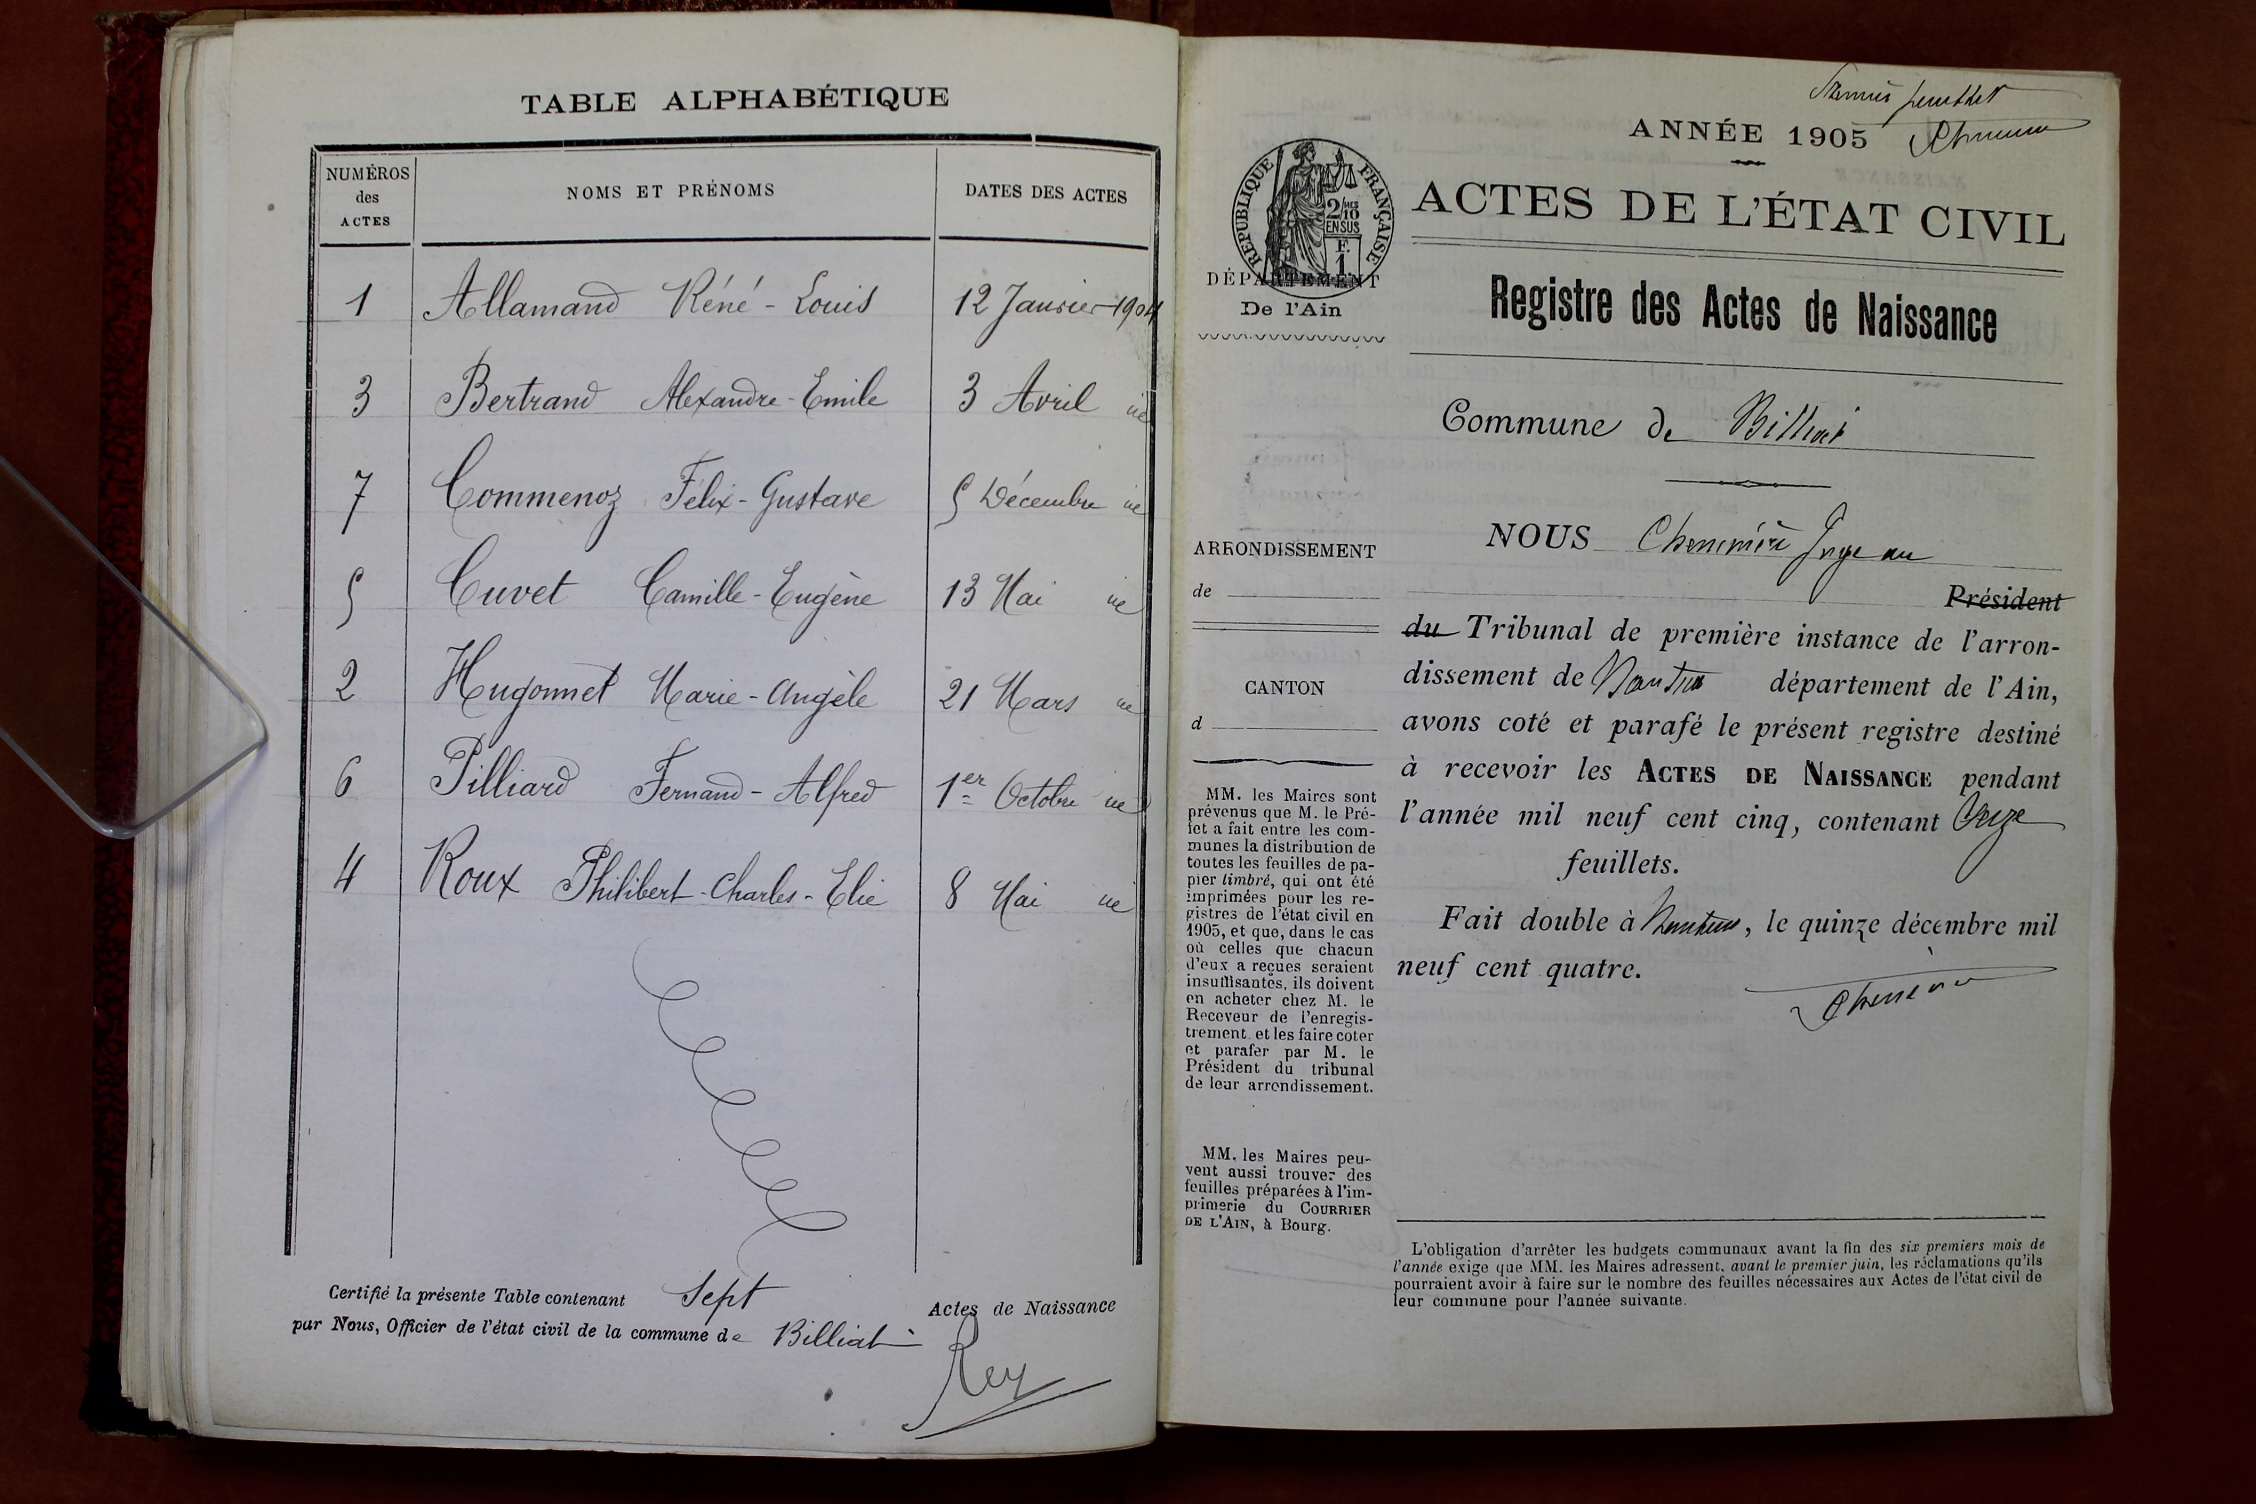 TABLE ALPHABÉTIQUE
NUMÉROS des ACTES NOMS ET PRÉNOMS DATES DES ACTES
1 Allamand Réné-Louis 12 Janvier 1904
3 Bertrand Alexandre-Emile 3 Avril
7 Commenoz Félix-Gustave 5 Décembre
5 Cuvet Camille-Eugène 13 Mai
2 Hugonnet Marie-Angèle 21 Mars
6 Pilliard Fernand-Alfred 1er Octobre
4 Roux Philibert-Charles-Elie 8 Mai
Certifié la présente Table contenant Sept Actes de Naissance
par Nous, Officier de l'état civil de la commune de Billiat
Rey
ANNÉE 1905
ACTES DE L'ÉTAT CIVIL
RÉPUBLIQUE FRANÇAISE
2/10
EN SUS
F.
1
DÉPARTEMENT
De l'Ain
Registre des Actes de Naissance
Commune de Billiat
ARRONDISSEMENT
de
CANTON
d
MM. les Maires sont
prévenus que M. le Pré-
fet a fait entre les com-
munes la distribution de
toutes les feuilles de pa-
pier timbré, qui ont été
imprimées pour les re-
gistres de l'état civil en
1905, et que, dans le cas
où celles que chacun
d'eux a reçues seraient
insuffisantes, ils doivent
en acheter chez M. le
Receveur de l'enregis-
trement et les faire coter
et parafer par M. le
Président du tribunal
de leur arrondissement.
MM. les Maires peu-
vent aussi trouver des
feuilles préparées à l'im-
primerie du COURRIER
DE L'AIN, à Bourg.
NOUS
Président
du Tribunal de première instance de l'arron-
dissement de Nantua département de l'Ain,
avons coté et parafé le présent registre destiné
à recevoir les ACTES DE NAISSANCE pendant
l'année mil neuf cent cinq, contenant Onze
feuillets.
Fait double à Nantua, le quinze décembre mil
neuf cent quatre.
L'obligation d'arrêter les budgets communaux avant la fin des six premiers mois de
l'année exige que MM. les Maires adressent, avant le premier juin, les réclamations qu'ils
pourraient avoir à faire sur le nombre des feuilles nécessaires aux Actes de l'état civil de
leur commune pour l'année suivante.